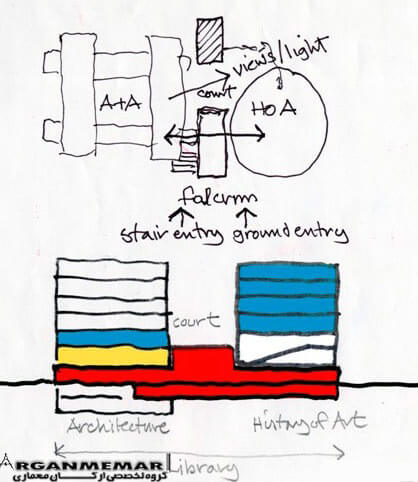 views/light
A+A
court
HOA
falcrm
stair entry ground entry
court
Architecture
History of Art
Library
ARGANMEMAR
گروه تخصصی ارکان معماری